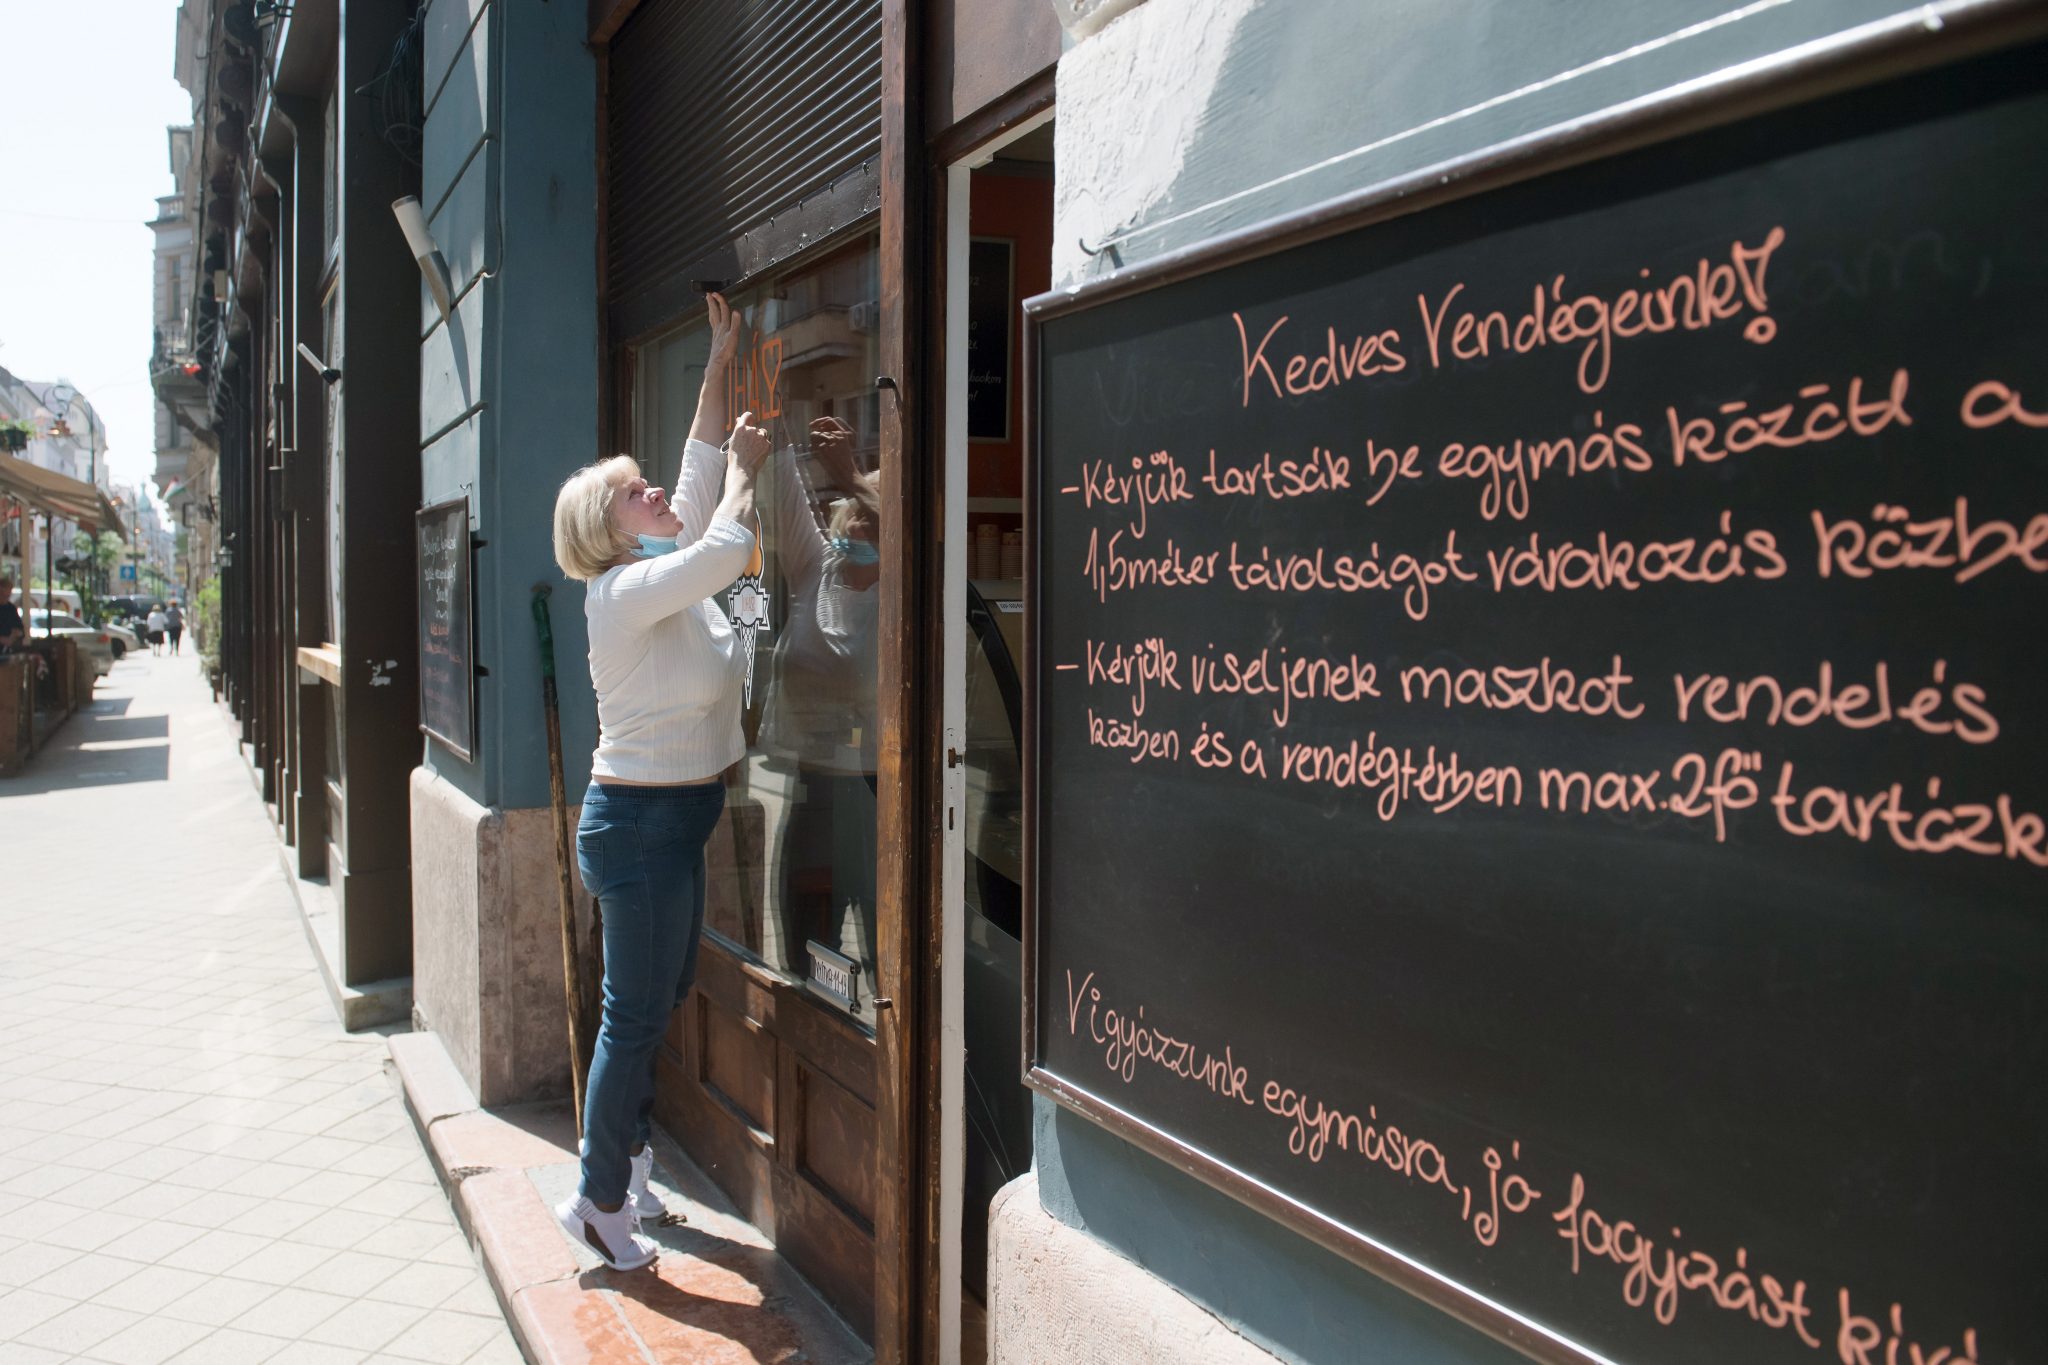 Kedves Vendégeink!
-Kérjük tartsák be egymás között a
1,5 méter távolságot várakozás közbe
- Kérjük viseljenek maszkot rendelés
közben és a vendégtérben max. 2 fő tartózk
Vigyázzunk egymásra, jó fagyizást kív
NYITVA 11-19